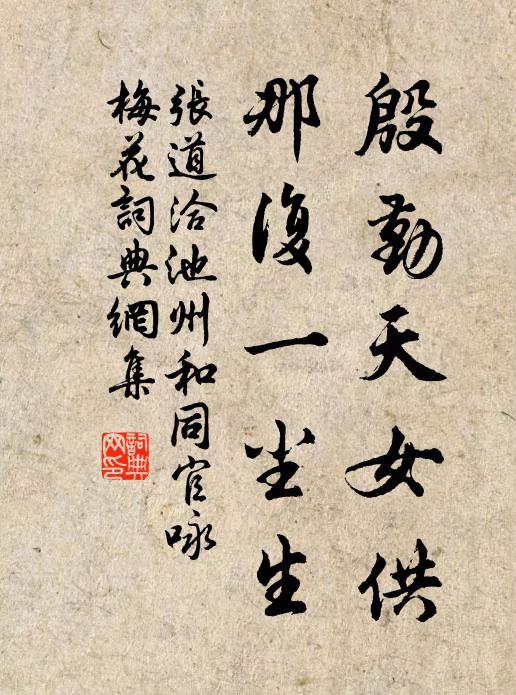 殷勤天女供
那復一尘生
張道洽池州和同官咏
梅花詞典網集
詞典網印